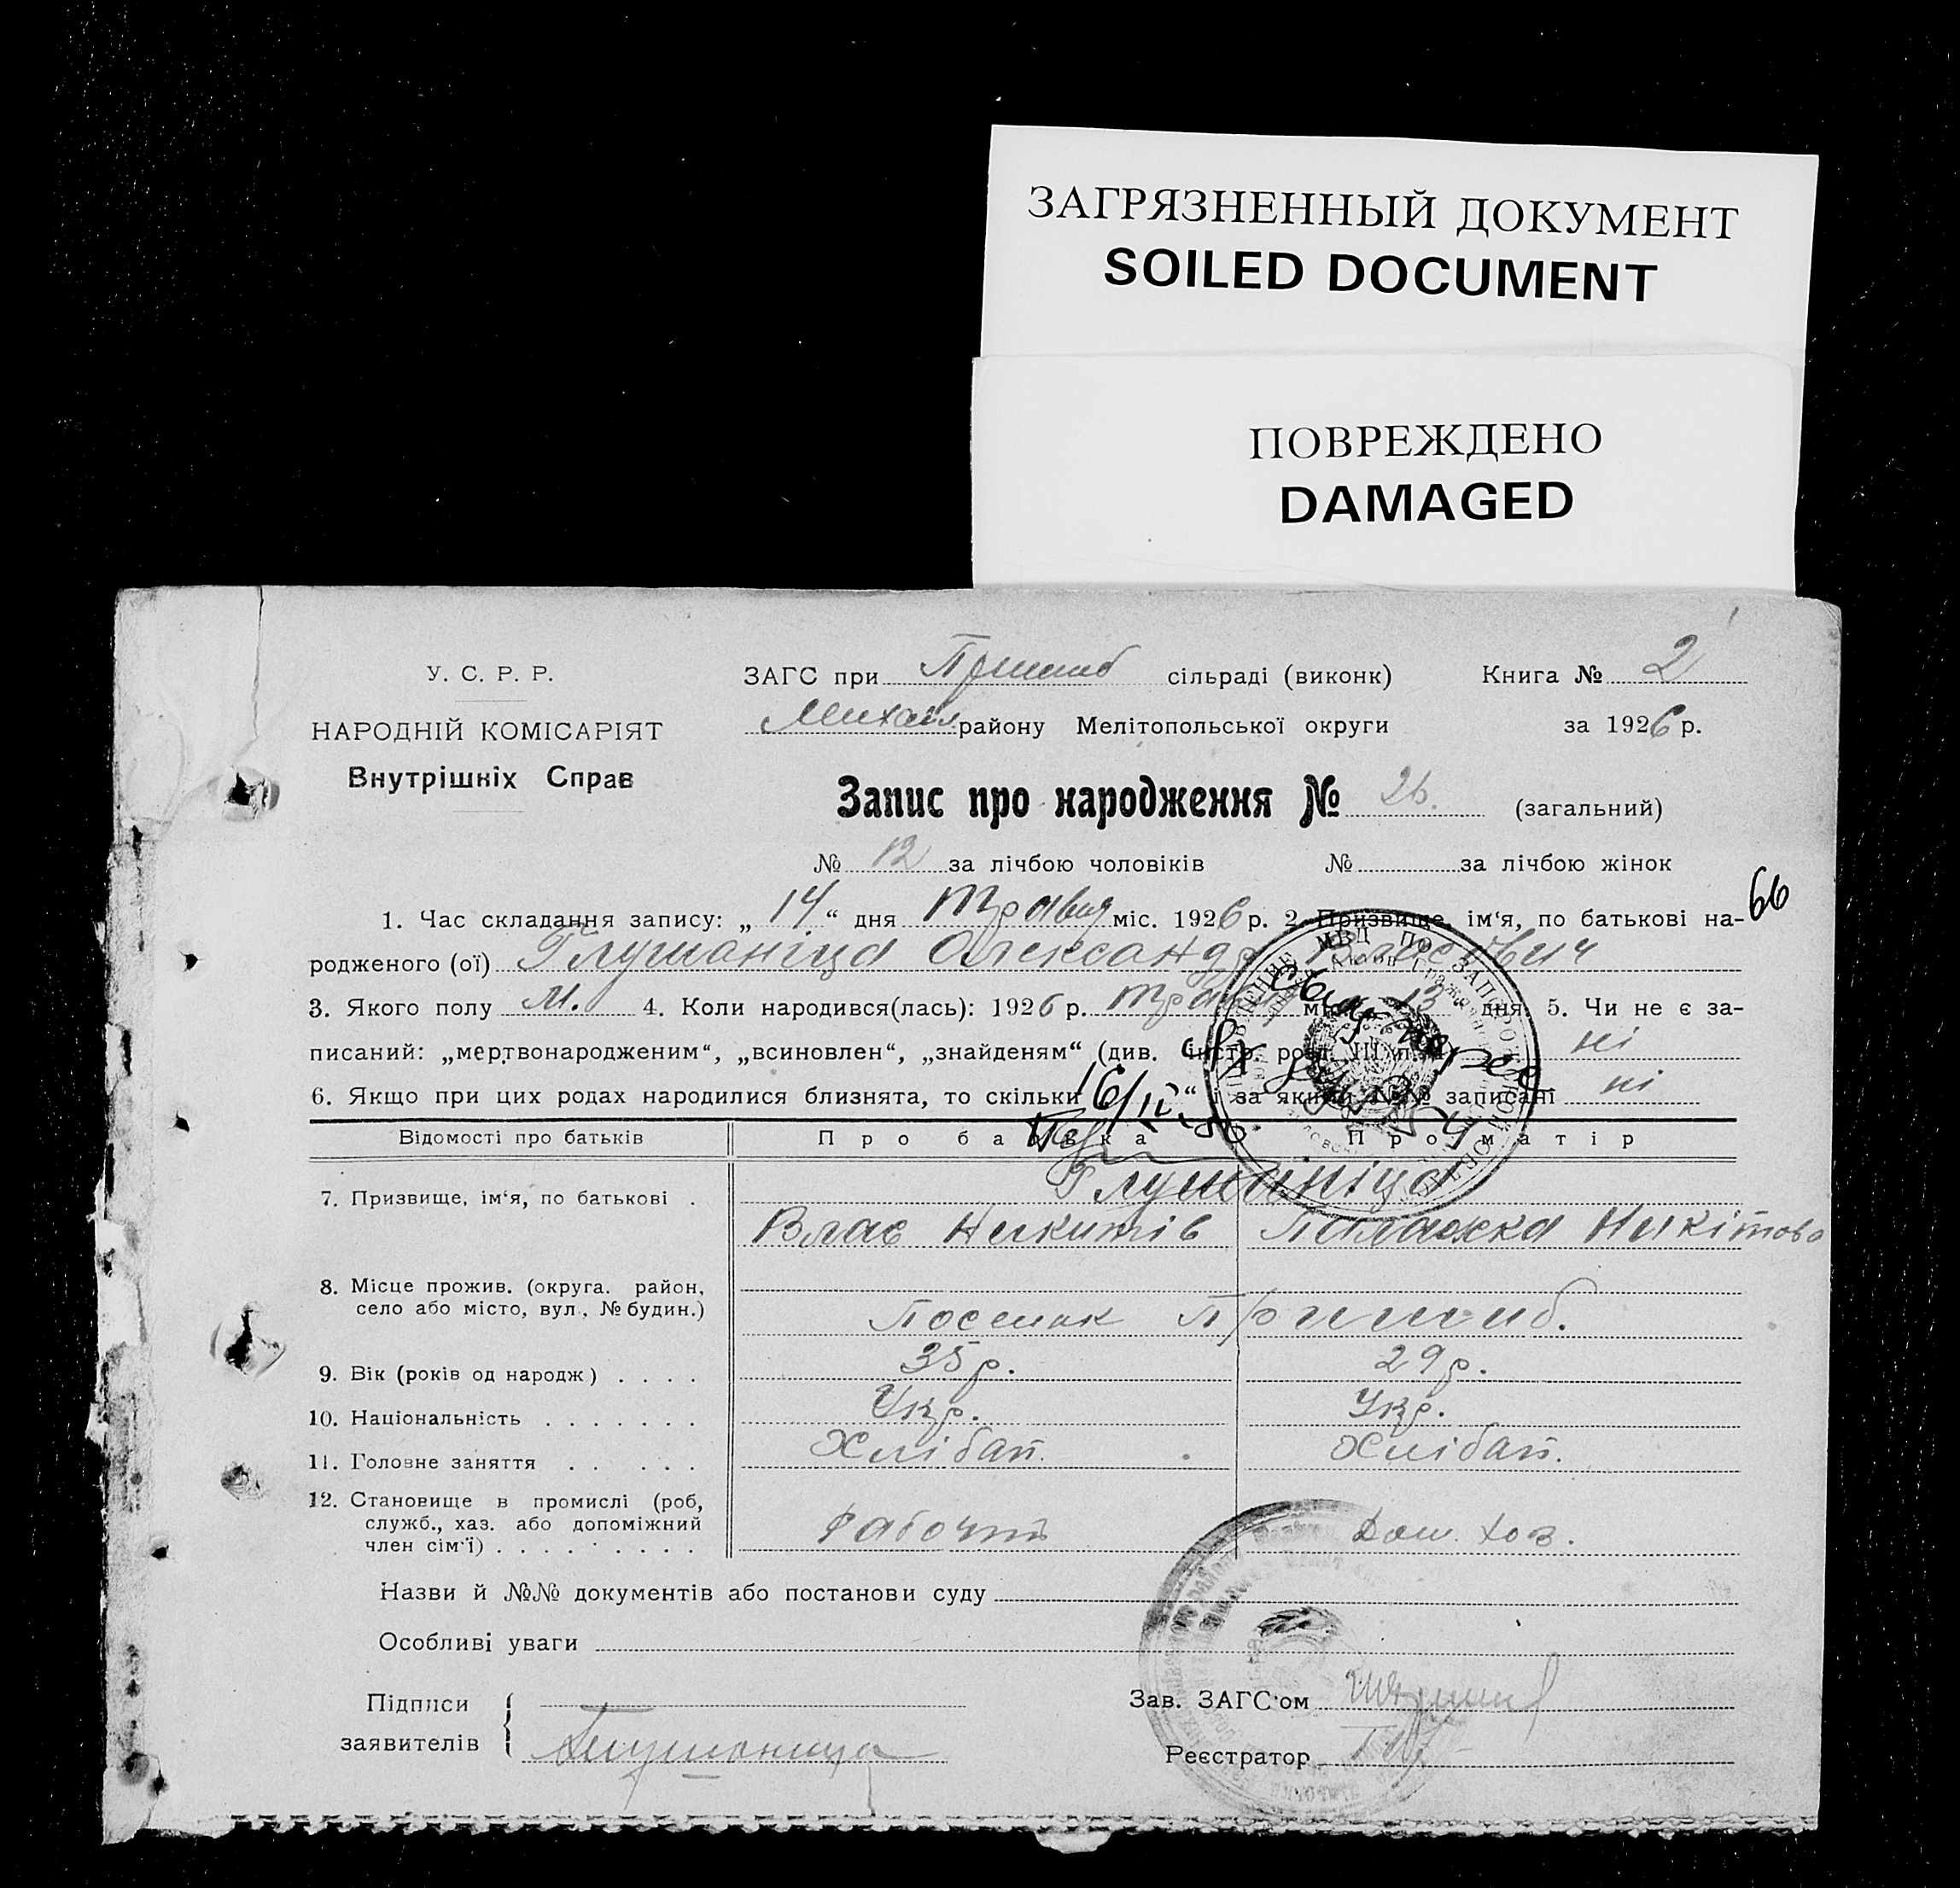 ЗАГРЯЗНЕННЫЙ ДОКУМЕНТ
SOILED DOCUMENT
ПОВРЕЖДЕНО
DAMAGED
У. С. Р. Р.
НАРОДНІЙ КОМІСАРІЯТ
Внутрішніх Справ
ЗАГС при Пришиб сільраді (виконк) Книга № 2
Михайл району Мелітопольської округи за 1926 р.
Запис про народження № 26. (загальний)
№ 12 за лічбою чоловіків № за лічбою жінок
66
1. Час складання запису: „ 14 “ дня Травня міс. 1926 р. 2. Призвище, ім‘я, по батькові на-
родженого (ої) Глушаніца Олександр Власович
3. Якого полу М. 4. Коли народився(лась): 1926 р. Травня міс. 13 дня. 5. Чи не є за-
писаний: „мертвонародженим“, „всиновлен“, „знайденям“ (див. інстр. розд. III ні
6. Якщо при цих родах народилися близнята, то скільки „ “ і за якими №№ записані ні
Відомості про батьків Про батька Про матір
7. Призвище, ім‘я, по батькові .
Глушаніца
Влас Никитів Палажка Никітова
8. Місце прожив. (округа. район,
село або місто, вул., № будин.)
Посилак Пришиб.
9. Вік (років од народж) . . . . 35 р. 29 р.
10. Національність . . . . . . . Укр. Укр.
11. Головне заняття . . . . . Хлібап. Хлібап.
12. Становище в промислі (роб,
служб., хаз. або допоміжний
член сім‘ї) . . . . . . . . . Дом. хоз.
Назви й №№ документів або постанови суду
Особливі уваги
Підписи
заявителів Глушаница
Зав. ЗАГС‘ом
Реєстратор